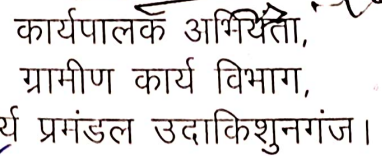 कार्यपालक अभियंता,
ग्रामीण कार्य विभाग,
र्य प्रमंडल उदाकिशुनगंज।